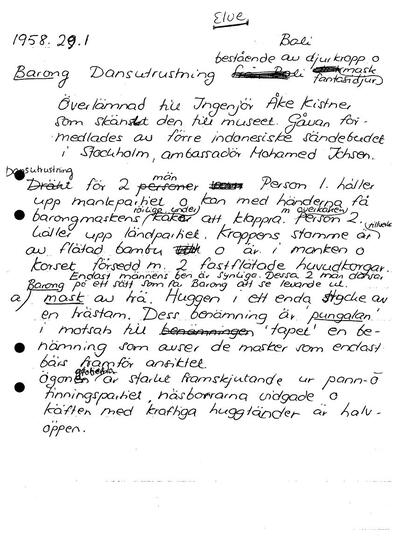 Elve
1958.29.1 Bali
bestående av djurkropp o
Barong Dansutrustning från Bali mask
fantasidjur)
Överlämnad till Ingenjör Åke Kistner
som skänkt den till museet. Gåvan för-
medlades av förre indonesiske sändebudet
i Stockholm, ambassadör Mohamed
Dansutrustning män
Dräkt för 2 personer Person 1. håller
upp mankepartiet o kan med händerna få
rörliga under m överkäken
barongmaskens käkar att klappra. Person 2.
håller upp ländpartiet. Kroppens stomme är
av flätad bambu o är i manken o
korset försedd m. 2 fastflätade huvudkorgar.
Endast männens ben är synliga. Dessa 2 män dansar
Barong på ett sätt som får Barong att se levande ut.
a) mask av trä. Huggen i ett enda stycke av
en trästam. Dess benämning är 'pungalan'
i motsats till benämningen 'tapel' en be-
nämning som avser de masker som endast
bärs framför ansiktet.
globerna
Ögonen är starkt framskjutande ur pann- o
tinningspartiet, näsborrarna vidgade o
käften med kraftiga huggtänder är halv-
öppen.